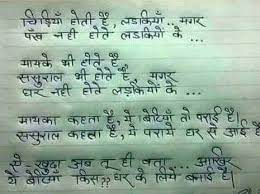 चिड़ियाँ होती है, लडकियाँ.. मगर
पँख नहीं होते लडकियों के ...
मायके भी होते है,
ससुराल भी होते है, मगर
घर नहीं होते लडकियों के ...
मायका कहता है, ये बेटियाँ तो पराई है।
ससुराल कहता है, ये पराये घर से आई है
खुदा अब तू ही बता... आखिर
ये बेटियाँ किस?? घर के लिये बनाई है।